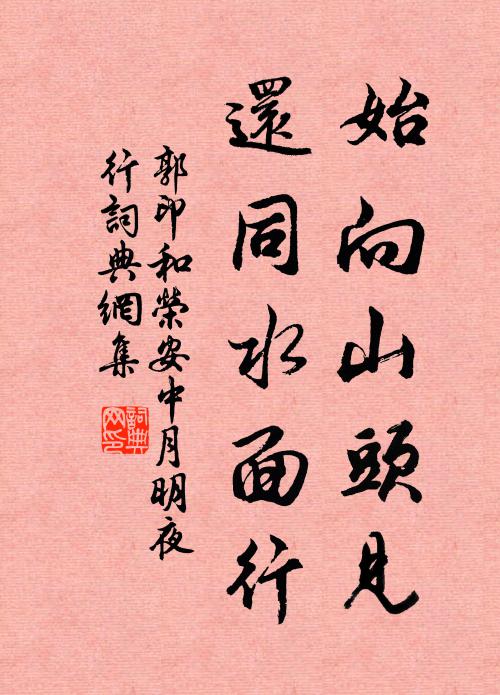 始向山頭見
還同水面行
郭印和榮安中月明夜
行詞典網集
詞典網印